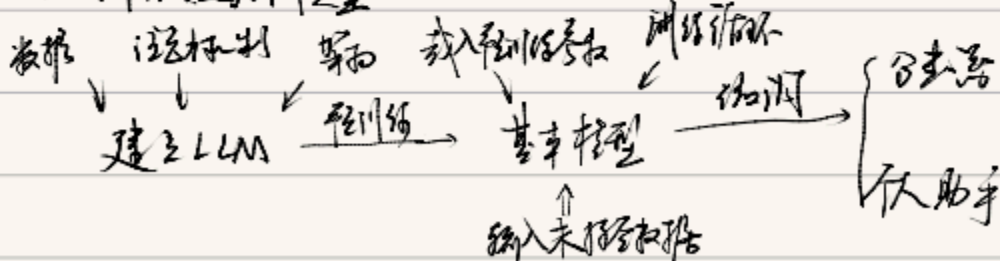 数据 注意机制 架构 载入预训练参数 训练循环
分类器
建立LLM 预训练 基本模型 微调
个人助手
输入未标签数据